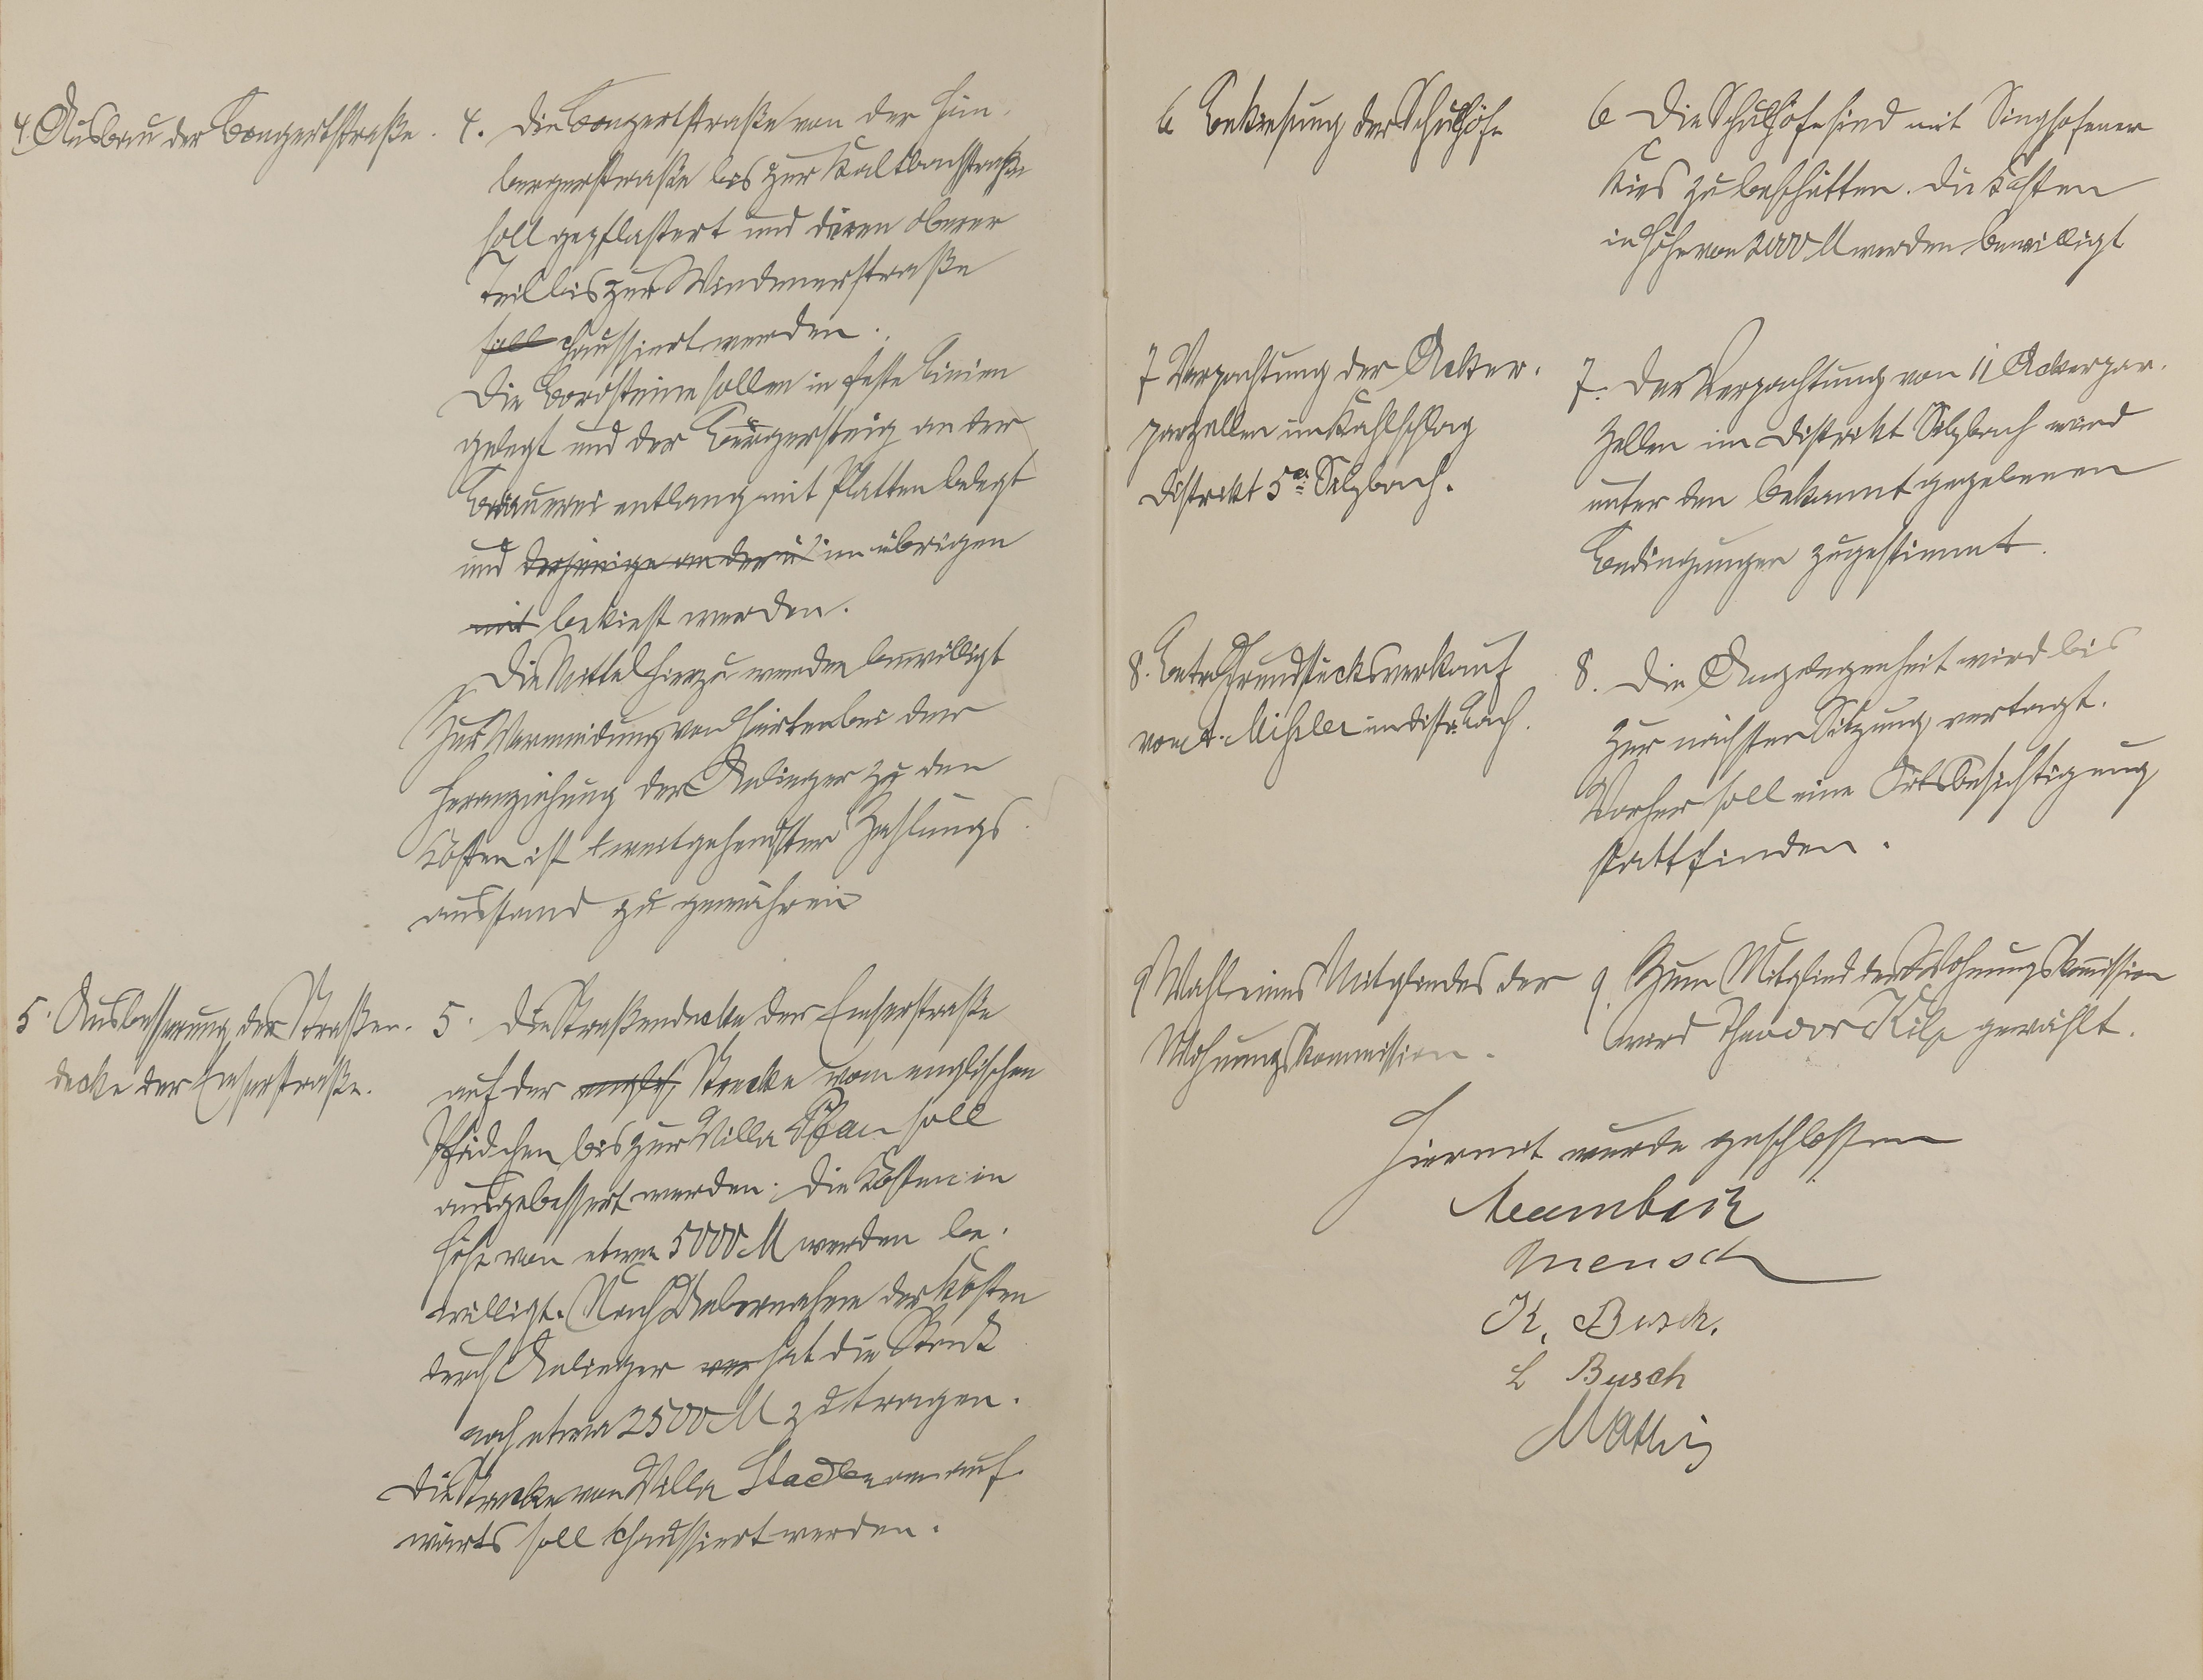 4. Ausbau der Bongertstraße.
4. Die Bongertstraße von der Hüm-
bergerstraße bis zur Kaltbachstraße
soll gepflastert und deren oberer
Teil bis zur Windenerstraße
soll chaussiert werden.
Die Bordsteine sollen in feste Linien
gelegt und der Bürgersteig an der
Brauerei entlang mit Platten belegt
und derjenige an der ü im übrigen
mit bekiest werden.
Die Mittel hierzu werden bewilligt
Zur Vermeidung von Härten bei der
Heranziehung der Anlieger zu den
Kosten ist weitgehendster Zahlungs-
ausstand zu gewähren
5. Ausbesserung der Straßen-
decke der Emserstraße.
5. Die Straßendecke der Emserstraße
auf der Strecke vom englischen
Pfädchen bis zur Villa soll
ausgebessert werden. Die Kosten in
Höhe von etwa 5000 M werden be-
willigt. Nach Uebernahme der Kosten
durch Anlieger hat die Stadt
noch etwa 2500 M zu tragen.
Die Strecke von Villa an auf-
wärts soll chaussiert werden.
6 Bekiesung der Schulhöfe
6 Die Schulhöfe sind mit Singhofener
Kies zu beschütten. Die Kosten
in Höhe von 2000 M werden bewilligt
7 Verpachtung der Acker-
parzellen im Kahlschlag
Distrikt 5a Selzbach.
7. Der Verpachtung von 11 Ackerpar-
zellen im Distrikt Selzbach wird
unter den bekannt gegebenen
Bedingungen zugestimmt.
8. Betr. Grundstücksverkauf
von A. Mißler im Distr. Bach.
8. Die Angelegenheit wird bis
zur nächsten Sitzung vertagt.
Vorher soll eine Ortsbesichtigung
stattfinden.
9 Wahl eines Mitgliedes der
Wohnungskommission.
9. Zum Mitglied der Wohnungskommission
wird Theodor Kilp gewählt.
Hiermit wurde geschlossen
Mensch
K. Busch.
L Busch